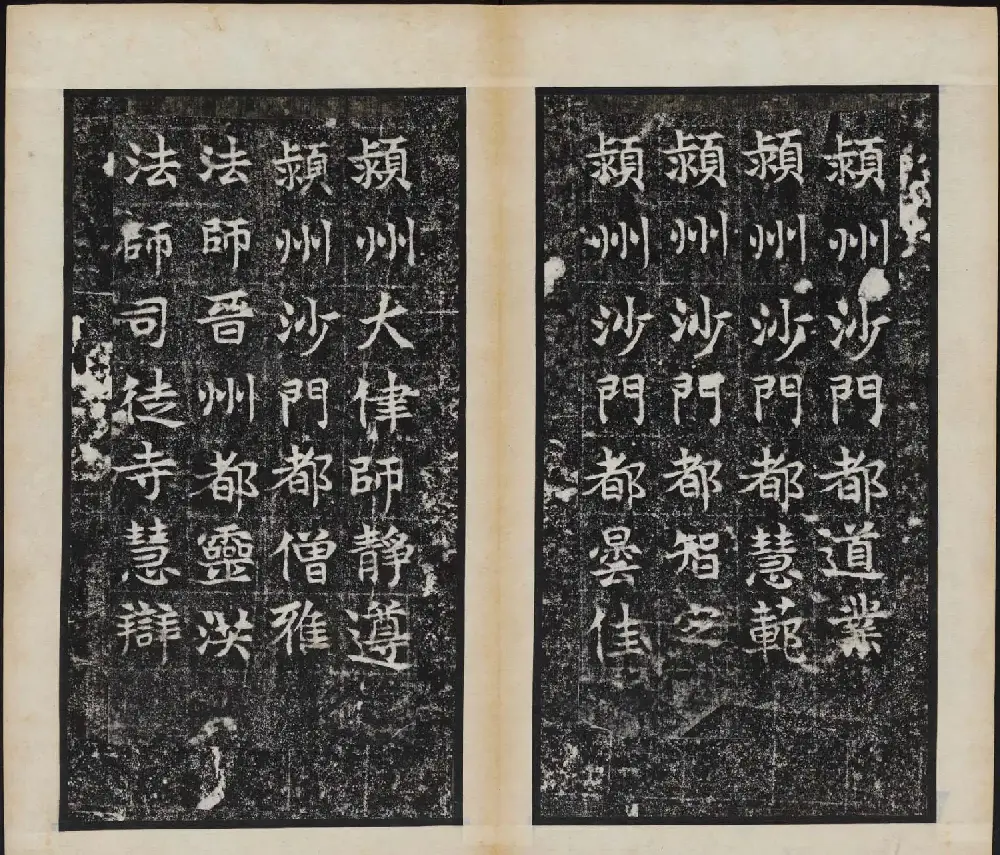 潁州沙門都道業
潁州沙門都慧範
潁州沙門都智
潁州沙門都曇佳
潁州大律師靜遵
潁州沙門都僧雅
法師晉州都靈
法師司徒寺慧辯